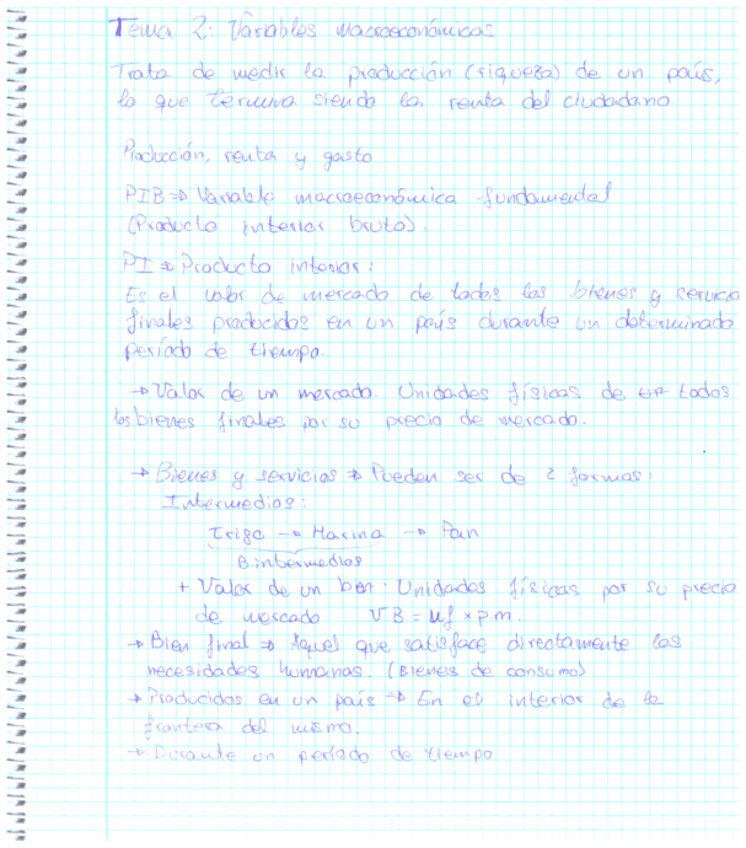 Tema 2: Variables Macroeconómicas
Trata de medir la producción (riqueza) de un país,
lo que termina siendo la renta del ciudadano
Producción, renta y gasto
PIB => Variable macroeconómica fundamental
(Producto interior bruto).
PI => Producto interior:
Es el valor de mercado de todos los bienes y servicio
finales producidos en un país durante un determinado
período de tiempo.
→ Valor de un mercado. Unidades físicas de todos
los bienes finales por su precio de mercado.
→ Bienes y servicios => Pueden ser de 2 formas:
Intermedios:
Trigo → Harina → Pan
B.intermedios
+ Valor de un bien. Unidades físicas por su precio
de mercado VB = uf × p.m.
→ Bien final => Aquel que satisface directamente las
necesidades humanas. (Bienes de consumo)
→ Producidos en un país => En el interior de la
frontera del mismo.
→ Durante un período de tiempo